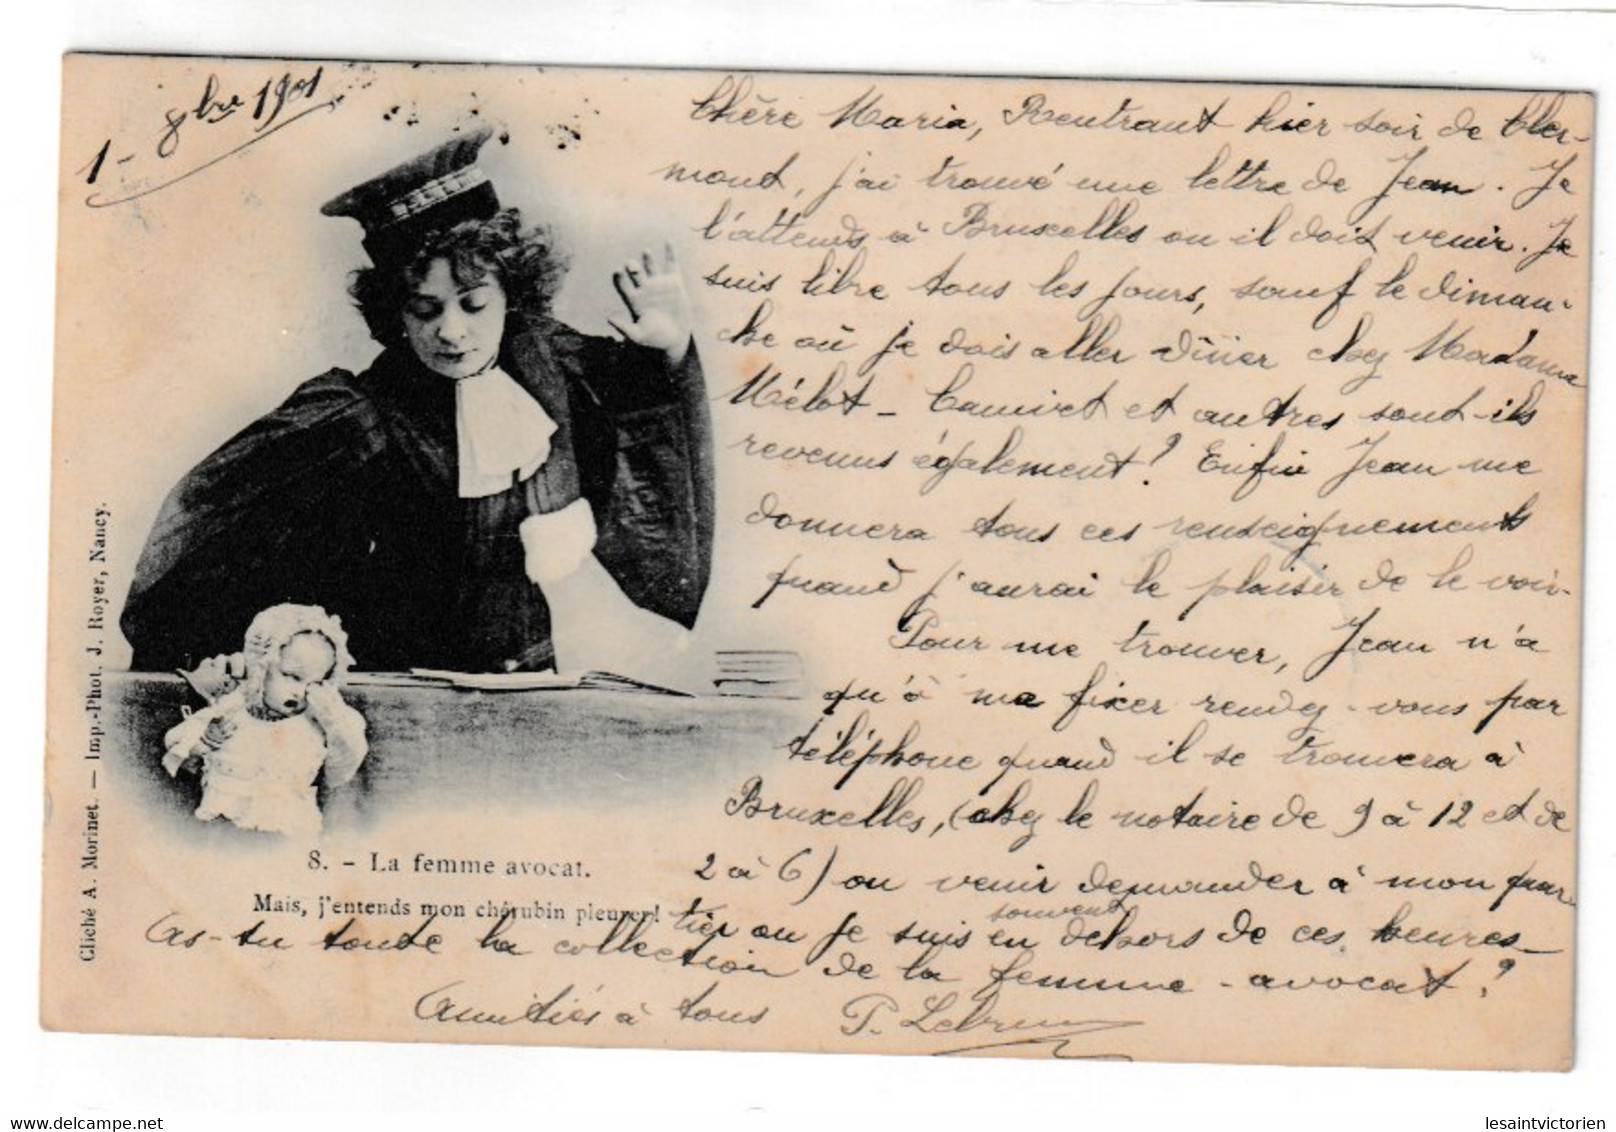 1 - 8bre 1901
Chère Maria, Rentrant hier soir de Cler-
mont, j'ai trouvé une lettre de Jean. Je
l'attends à Bruxelles ou il doit venir. Je
suis libre tous les jours, sauf le diman-
che où je dois aller dîner chez Madame
Mélot - Camivet et autres sont-ils
revenus également? Enfin Jean me
donnera tous ces renseignements
quand j'aurai le plaisir de le voir.
Pour me trouver, Jean n'a
qu'à me fixer rendez-vous par
téléphone quand il se trouvera à
Bruxelles, (chez le notaire de 9 à 12 et de
2 à 6) ou venir demander à mon quar-
tier ou je suis souvent en dehors de ces heures_
As-tu toute la collection de la femme-avocat?
Amitiés à tous P. Lebrun
8. - La femme avocat.
Mais, j'entends mon chérubin pleurer!
Cliché A. Morinet. — Imp.-Phot. J. Royer, Nancy.
lesaintvictorien
delcampe.net